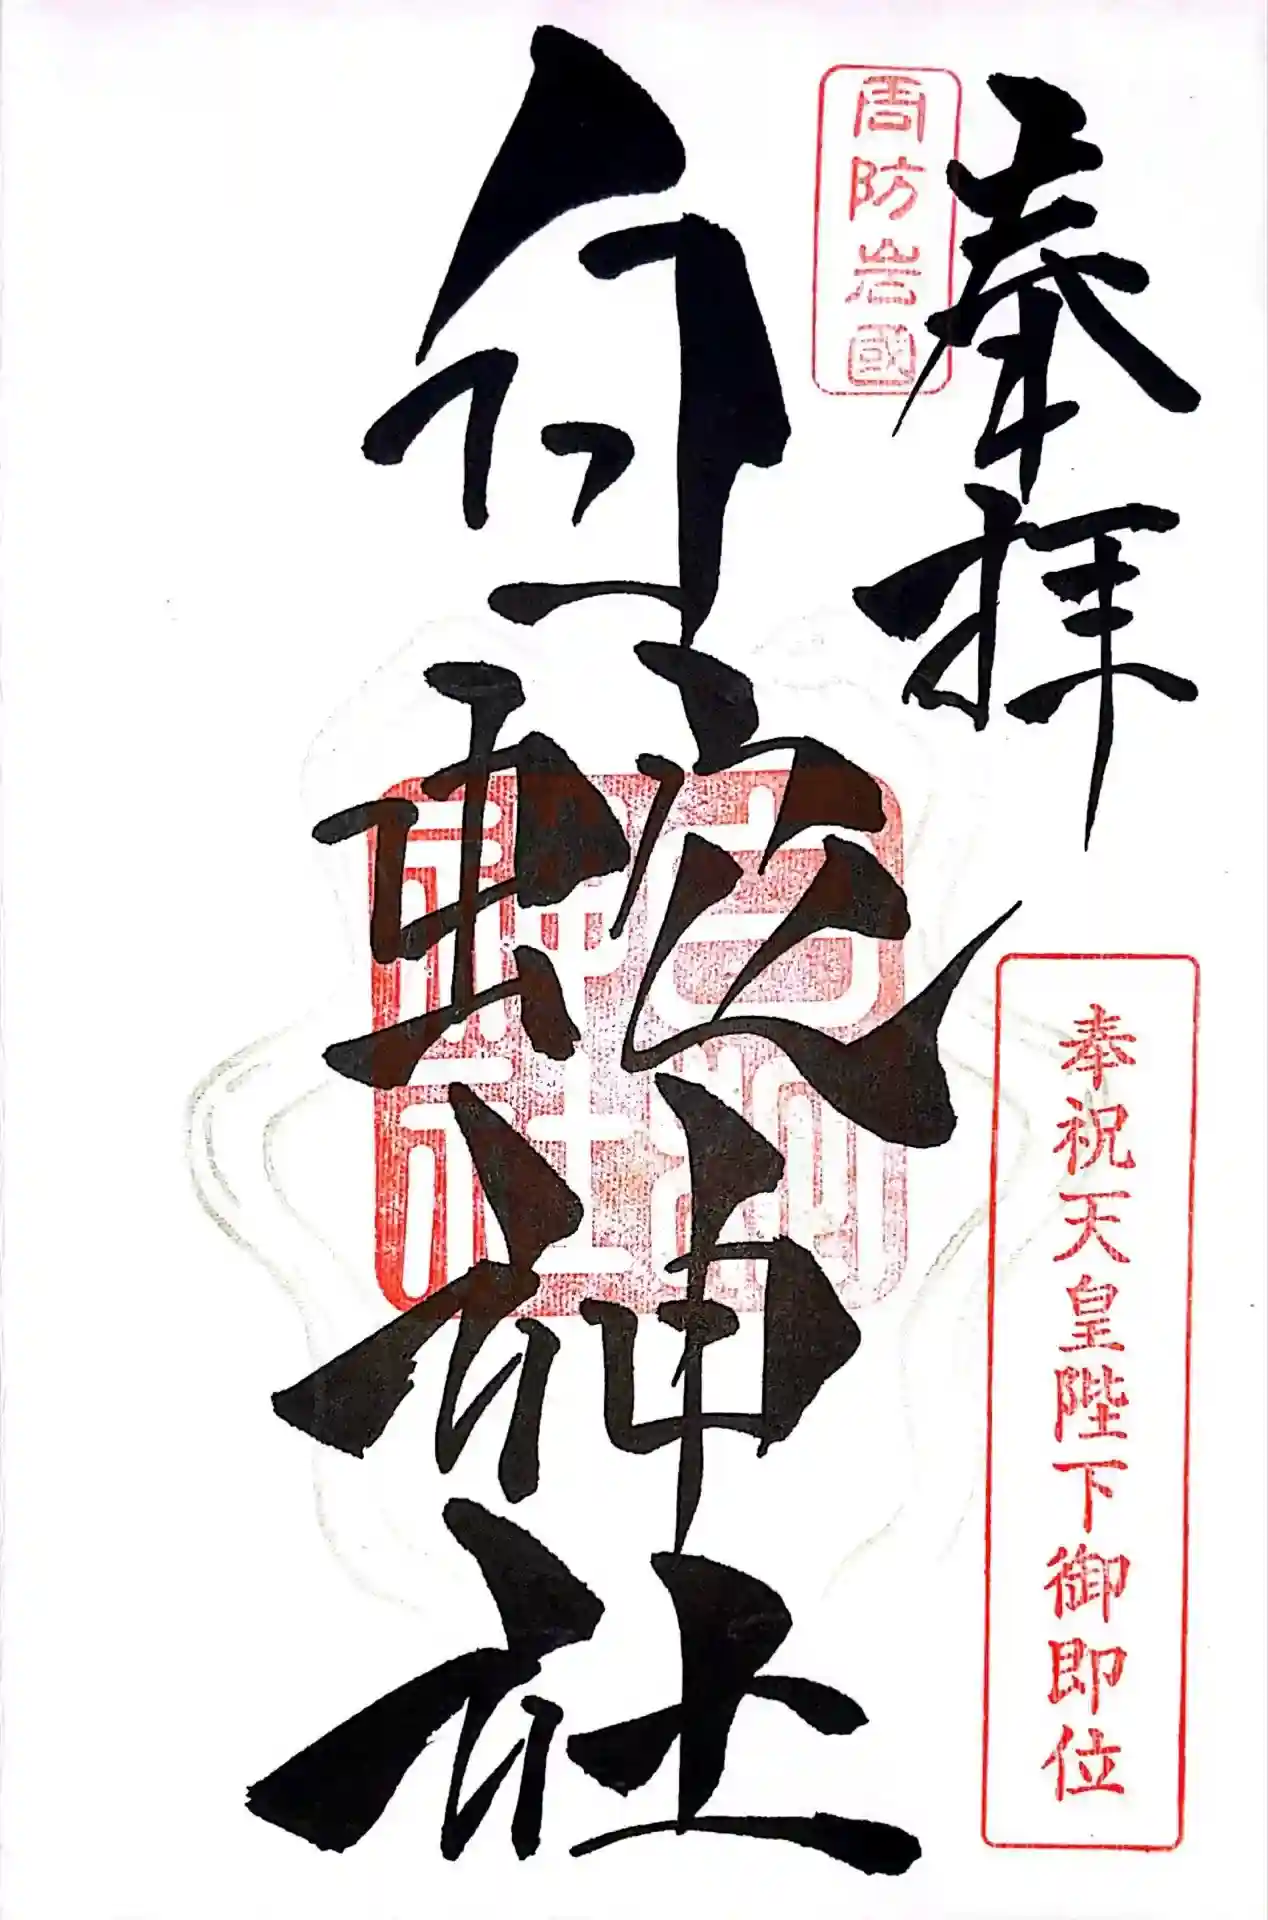 奉拝
周防岩國
奉祝天皇陛下御即位
白蛇神社
白蛇神社